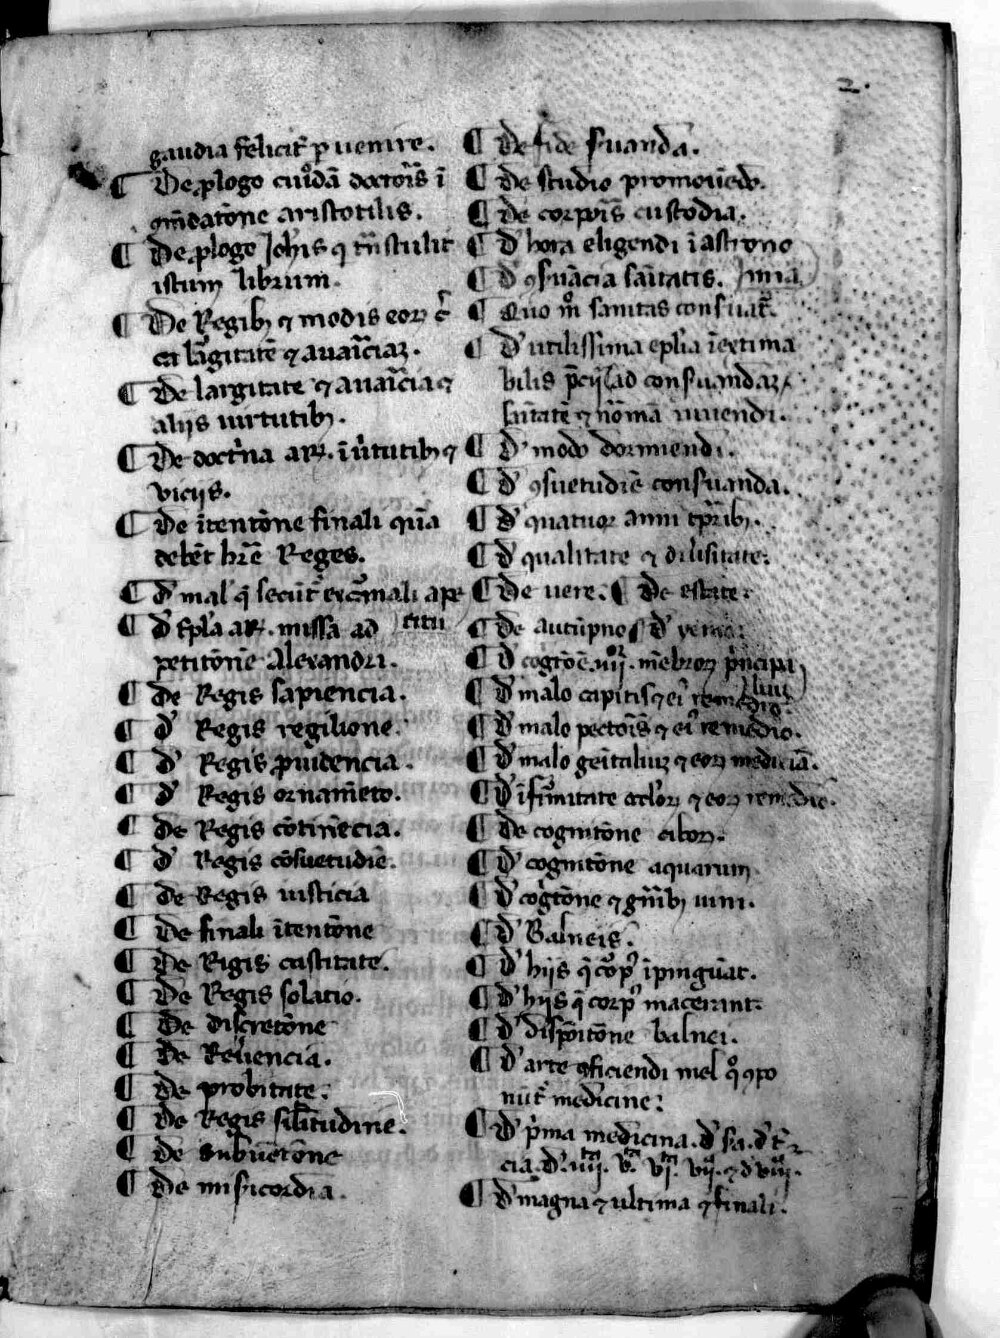 2.
gaudia felicit͛ ꝑuenire.
¶ De ꝓlogo cuiꝰdā doctoris ī
ꝯmēdatōne aristotilis.
¶ De ꝓlogo Joh̄is q̄ tn̄stulit
istum librum.
¶ De Regibꝫ ⁊ modis eoꝝ
ca largitatē ⁊ auaīciaꝫ.
¶ De largitate ⁊ auaīcia ⁊
aliis uirtutibꝫ.
¶ De doct̍na ar̄. ī ūtutibꝫ ⁊
viciis.
¶ De ītentōne finali quā
debēt hr̄e Reges.
¶ D̓ mal̓ q̄ secūt͛ ex c̄nali ape
titu
¶ D̓ ep̄la ar̄. missa ad
petitōnē Alexandri.
¶ De Regis sapiencia.
¶ D̓ Regis regilione.
¶ D̓ Regis ꝓuidencia.
¶ D̓ Regis ornamēto.
¶ De Regis cōtinēcia.
¶ D̓ Regis cōsuetudīe.
¶ De Regis iusticia
¶ De finali ītentōne
¶ De Rigis castitate.
¶ De Regis solacio.
¶ De discretōne
¶ De Reūencia.
¶ De probitate.
¶ De Regis sil̄itudine.
¶ De subuētōne
¶ De mīsicordia.
¶ De fide s̓uanda.
¶ De studio promouēdo.
¶ De corporis custodia.
¶ D̓ hora eligendi ī astrono
mia
¶ D̓ ꝯs̓uācia sāitatis.
¶ Quo mº sanitas conseruat͛.
¶ D̓ utilissima ep̄lia īextima
bilis p̄cii ad cons̓uandaꝫ
sāitatē ⁊ nōmā uiuendi.
¶ D̓ modo dormiendi.
¶ D̓ ꝯsuetudīe cons̓uanda.
¶ D̓ quatuor anni tp̄ribꝫ.
¶ D̓ qualitate ⁊ diūsitate.
¶ De uere. ¶ De estate.
¶ De autūpno ¶ D̓ yeme.
¶ D̓ cogītōe .iiiiᵒʳ. mēbroꝝ p̍ncipa
liuꝫ
¶ D̓ malo capitis ⁊ eiꝰ remedio.
¶ D̓ malo pectoris ⁊ eiꝰ remedio.
¶ D̓ malo geītaliuꝫ ⁊ eoꝝ medicīa.
¶ D̓ īfirmitate ocl̓oꝝ ⁊ eoꝝ remedio.
¶ De cognitōne ciboꝝ.
¶ D̓ cognitōne aquarum
¶ D̓ cogītōne ⁊ gn̄ibꝫ uini.
¶ D̓ Balneis.
¶ D̓ hiis q̄ corpꝰ īpinguāt.
¶ D̓ hiis q̄ corpꝰ macerant.
¶ D̓ dispōitōne balnei.
¶ D̓ arte ꝯficiendi mel qº ꝯpo
nūt͛ medicine.
¶ D̓ p̍ma medicina. d̓ s̄a. d̓ t̓
cia. d̓ .iiiiᵗᵃ. vᵗᵃ. viᵗᵃ. viiᵃ. ⁊ d̓ viiiᵃ.
¶ D̓ magna ⁊ ultima ⁊ finali.